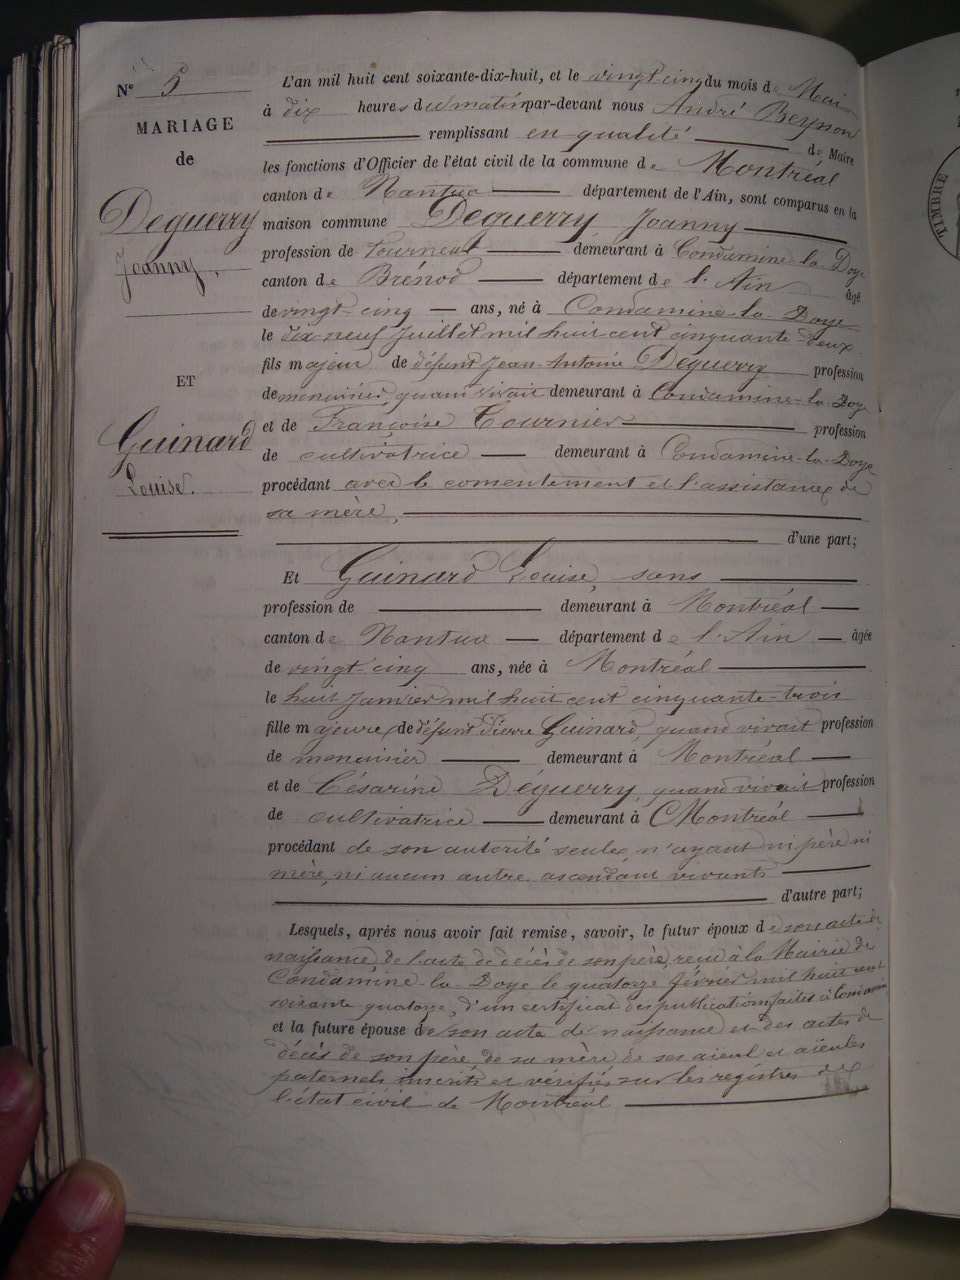 N° 5
MARIAGE
de
Deguerry
Jeanny.
ET
Guinard
Louise.
L'an mil huit cent soixante-dix-huit, et le vingt cinq du mois de Mai
à dix heures du matin par-devant nous André Beysson
remplissant en qualité de Maire
les fonctions d'Officier de l'état civil de la commune de Montréal
canton de Nantua département de l'Ain, sont comparus en la
maison commune Deguerry Joanny
profession de tourneur demeurant à Condamine-la-Doye
canton de Brénod département de l'Ain âgé
de vingt-cinq ans, né à Condamine-la-Doye
le dix-neuf Juillet mil huit cent cinquante-deux
fils majeur de défunt Jean-Antoine Déguerry profession
de menuisier, quand vivait demeurant à Condamine-la-Doye
et de Françoise Tournier profession
de cultivatrice demeurant à Condamine-la-Doye
procédant avec le consentement et l'assistance de
sa mère,
d'une part;
Et Guinard Louise, sans
profession de demeurant à Montréal
canton de Nantua département de l'Ain âgée
de vingt cinq ans, née à Montréal
le huit Janvier mil huit cent cinquante-trois
fille majeure, de défunt Pierre Guinard, quand vivait profession
de menuisier demeurant à Montréal
et de Césarine Déguerry, quand vivait profession
de cultivatrice demeurant à Montréal
procédant de son autorité seule, n'ayant ni père ni
mère, ni aucun autre ascendant vivants
d'autre part;
Lesquels, après nous avoir fait remise, savoir, le futur époux de son acte de
naissance, de l'acte de décès de son père, reçu à la Mairie de
Condamine-la-Doye le quatorze février mil huit cent
soixante quatorze, d'un certificat des publications faites à Condamine
et la future épouse de son acte de naissance et des actes de
décès de son père, de sa mère de ses aïeul et aïeules
paternels inscrits et vérifiés sur les registres de
l'état civil de Montréal
TIMBRE